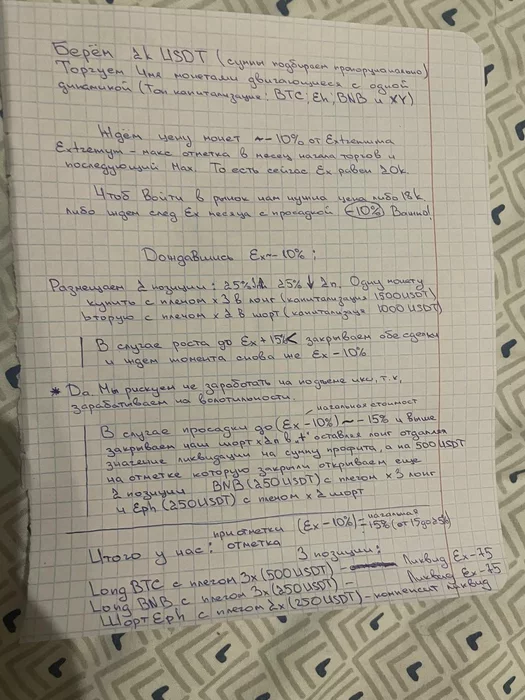 Берём 2k USDT (суммы подбираем пропорционально)
Торгуем 4мя монетами двигающимися с одной
динамикой (Топ капитализация: BTC, Eh, BNB и XY)
Ждём цену монет ~-10% от Extremuma
Extremym - макс отметка в месяц начала торгов и
последующий Мах. То есть сейчас Ex равен 20k.
Чтоб Войти в рынок нам нужна цена либо 18k,
либо ждем след Ex месяца с просадкой -10% Важно!
Дождавшись Ex~-10%:
Размещаем 2 позиции: 25%↑ 25%↓ 2п. Одну монету
купить с плечом x3 в лонг (капитализация 1500USDT)
вторую с плечом x2 в шорт (капитализ. 1000 USDT)
В случае роста до Ex+15% закриваем обе сделки
и ждем момента снова же Ex-10%
* Да. Мы рискуем не заработать на подьеме икс, т.к,
зарабатываем на волотильности.
начальная стоимост
В случае просадки до (Ex-10%) ~-15% и выше
закриваем наш шорт x2п в "+" оставляя лонг отдаляя
значение ликвидации на сумму профита, а на 500 USDT
на отметке которую закрыли открываем еще
2 позиции BNB (250USDT) с плечом x3 лонг
и Eph (250USDT) с плечом x2 шорт
Итого у нас: при отметки (Ex-10%) = начальная
отметка -15% (от 15 до 25%)
3 позиции:
Long BTC с плечом 3x (500USDT) - Ликвид Ex-35
Long BNB с плечом 3x (250USDT) - Ликвид Ex-35
Шорт Eph с плечом 2x (250USDT) - компенсит ликвид